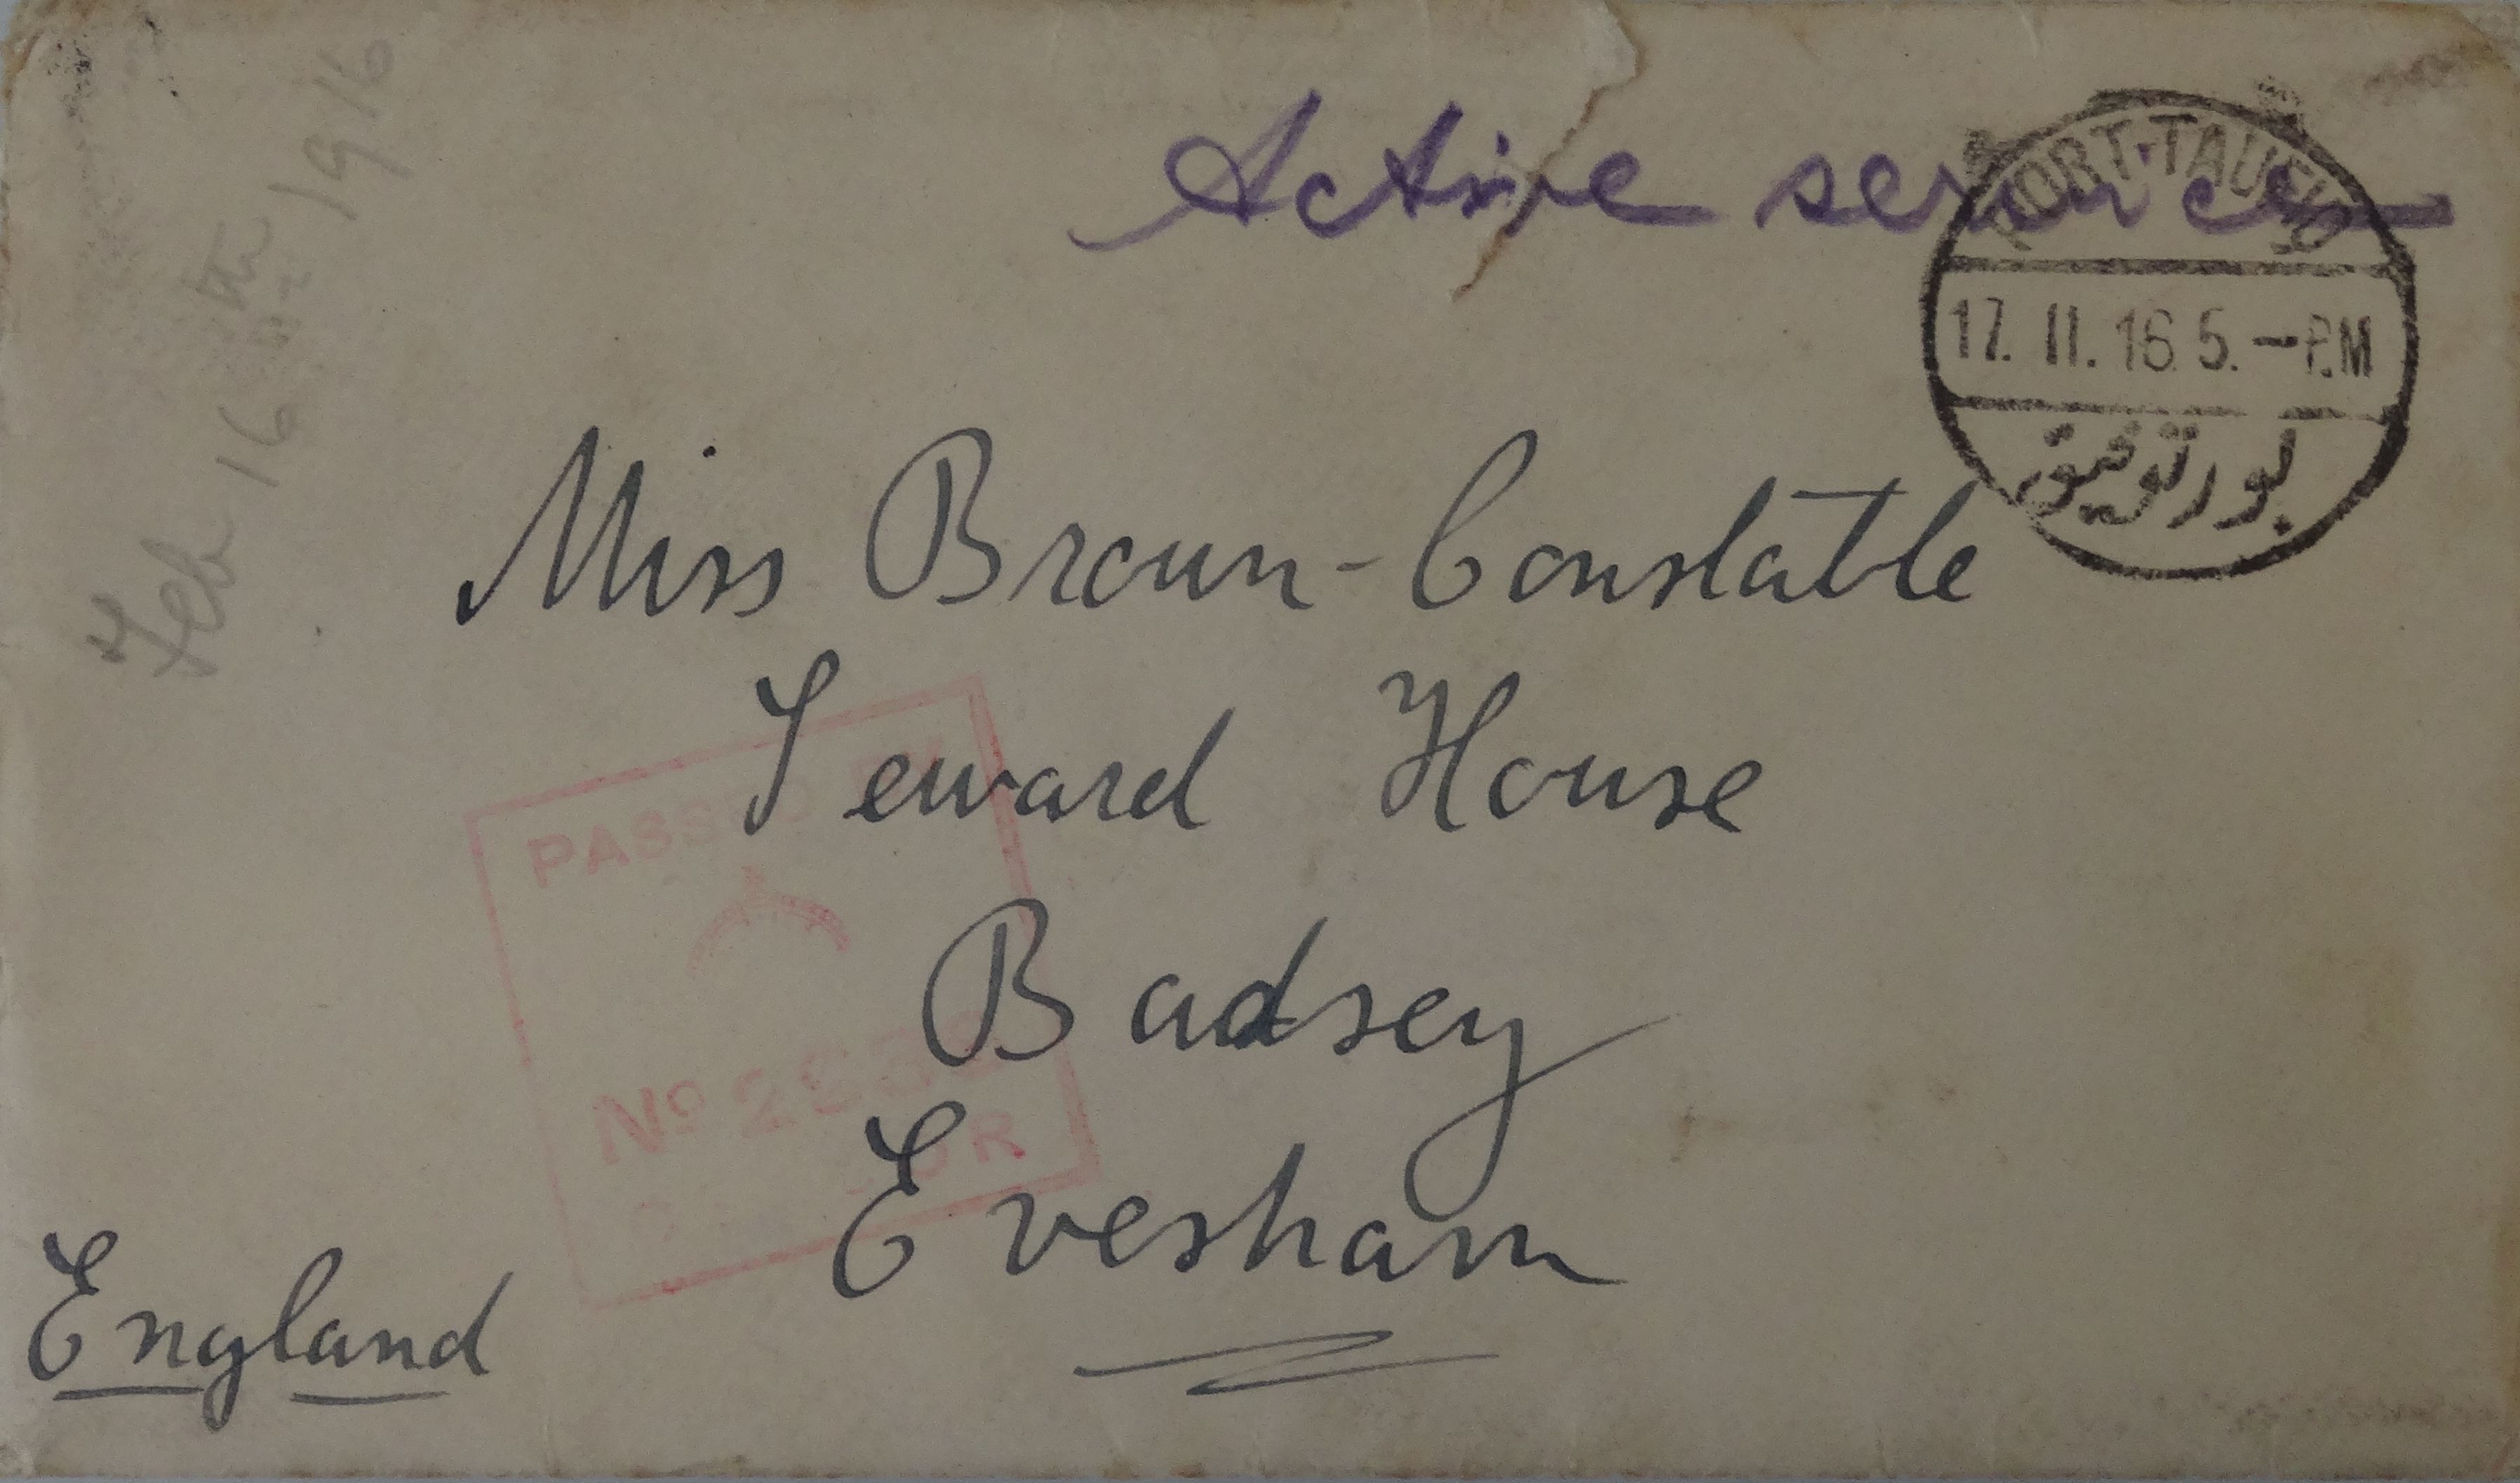 Feb 16th 1916
Active service
PORT-TAUFIQ
17. II. 16 5.-P.M
بورتوفيق
Miss Brown-Constable
Seward House
Badsey
Evesham
England
PASSED BY
No
CENSOR